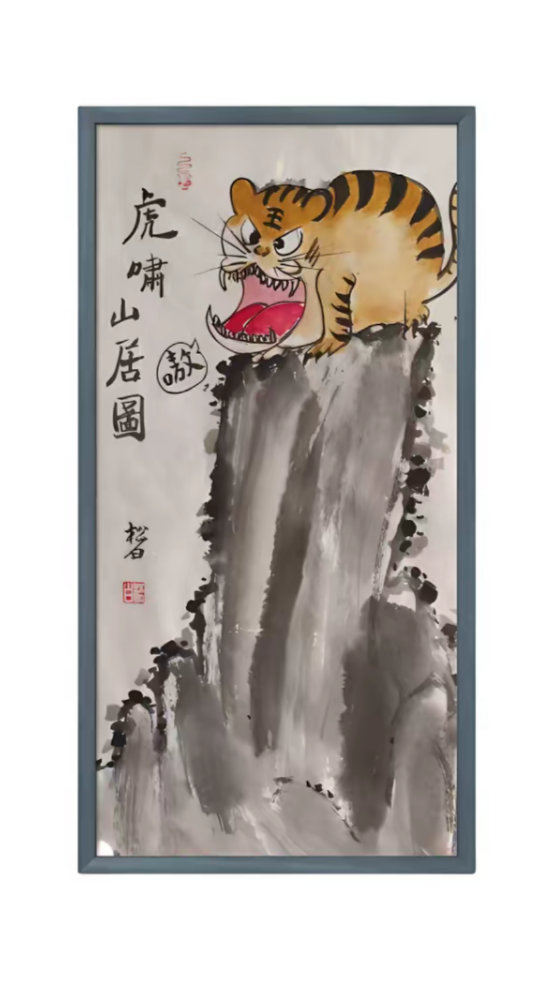 虎嘯山居圖
嗷
王